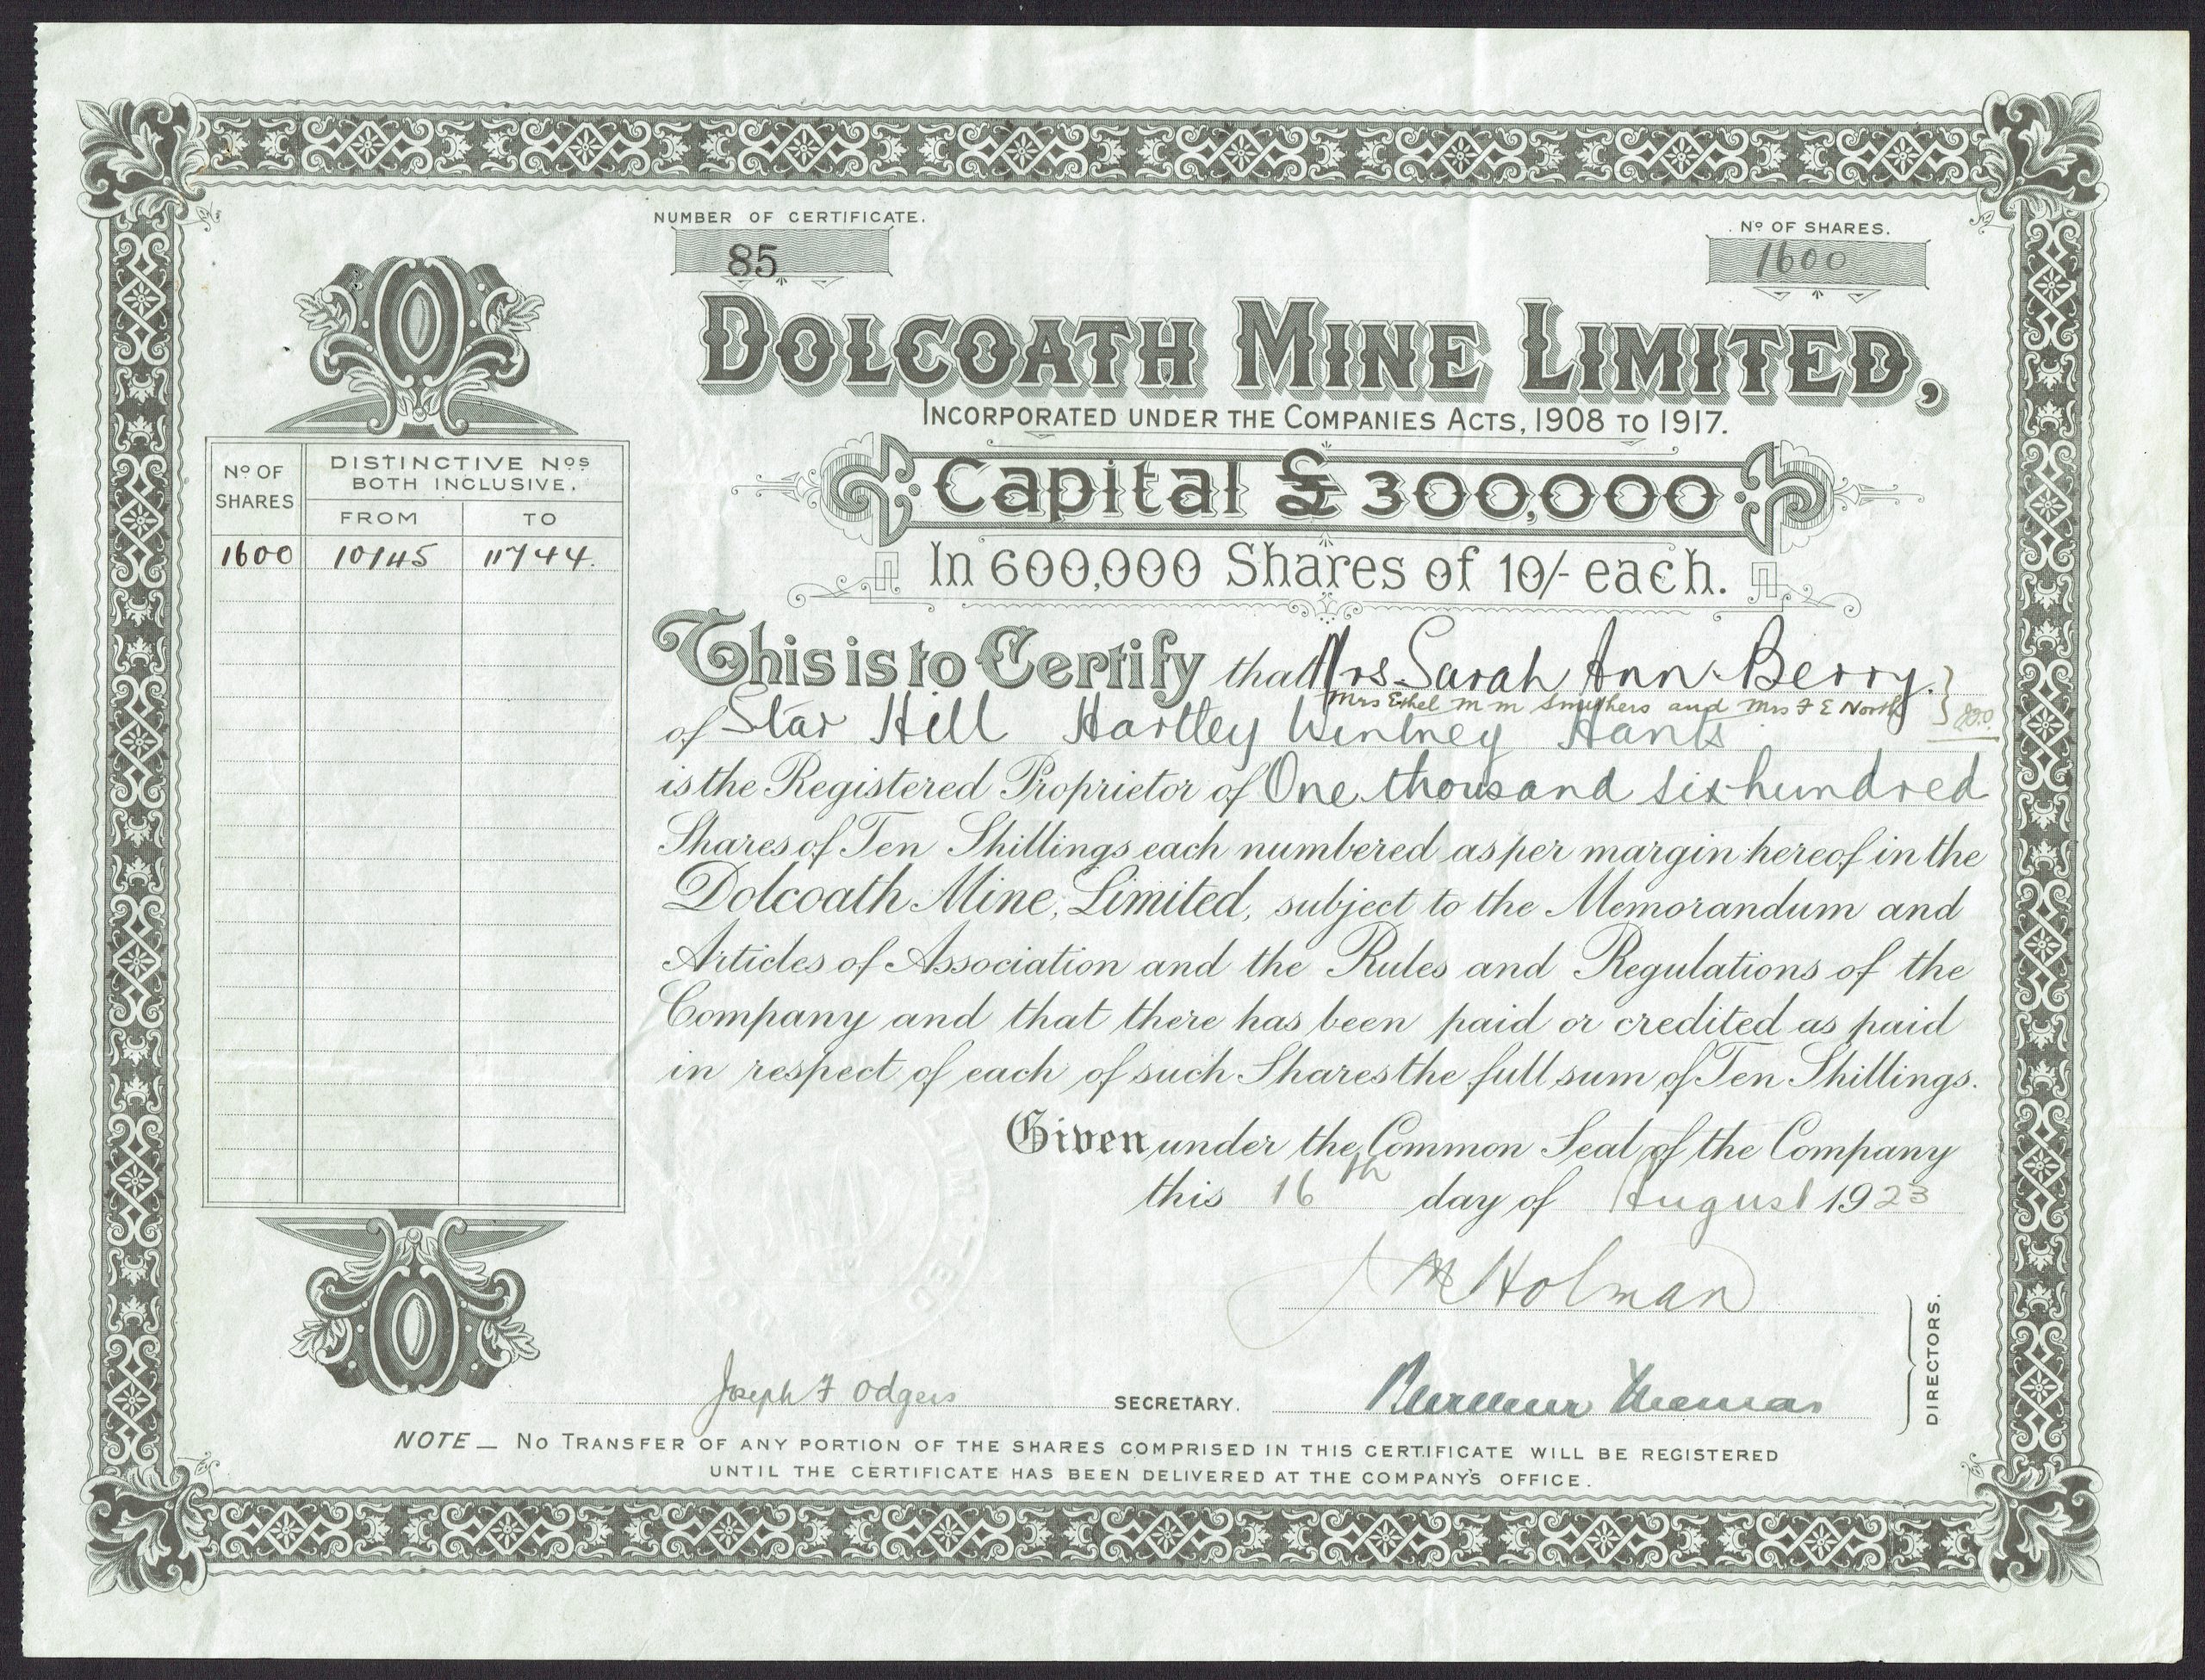 NUMBER OF CERTIFICATE.
85
Nº OF SHARES.
1600
DOLCOATH MINE LIMITED,
INCORPORATED UNDER THE COMPANIES ACTS, 1908 TO 1917.
Capital £300,000
In 600,000 Shares of 10/- each.
Nº OF SHARES
DISTINCTIVE Nos BOTH INCLUSIVE.
FROM TO
1600 10145 11744.
This is to Certify that Mrs Sarah Ann Berry.
Mrs Ethel M M Smythers and Mrs F E North
of Star Hill Hartley Wintney Hants
is the Registered Proprietor of One thousand six hundred
Shares of Ten Shillings each numbered as per margin hereof in the
Dolcoath Mine, Limited, subject to the Memorandum and
Articles of Association and the Rules and Regulations of the
Company and that there has been paid or credited as paid
in respect of each of such Shares the full sum of Ten Shillings.
Given under the Common Seal of the Company
this 16th day of August 1923
J M Holman
DIRECTORS.
Joseph F Odgers SECRETARY. Thomas
NOTE _ NO TRANSFER OF ANY PORTION OF THE SHARES COMPRISED IN THIS CERTIFICATE WILL BE REGISTERED
UNTIL THE CERTIFICATE HAS BEEN DELIVERED AT THE COMPANY'S OFFICE.